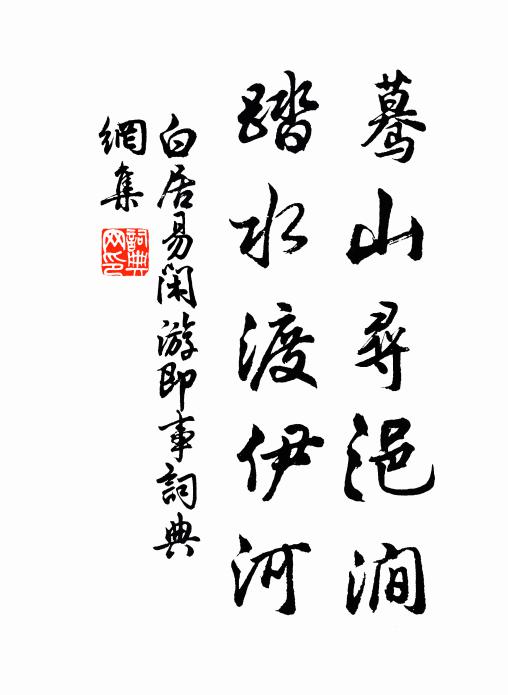 驀山尋浥澗
踏水渡伊河
白居易閑游即事詞典
網集
詞典
网印